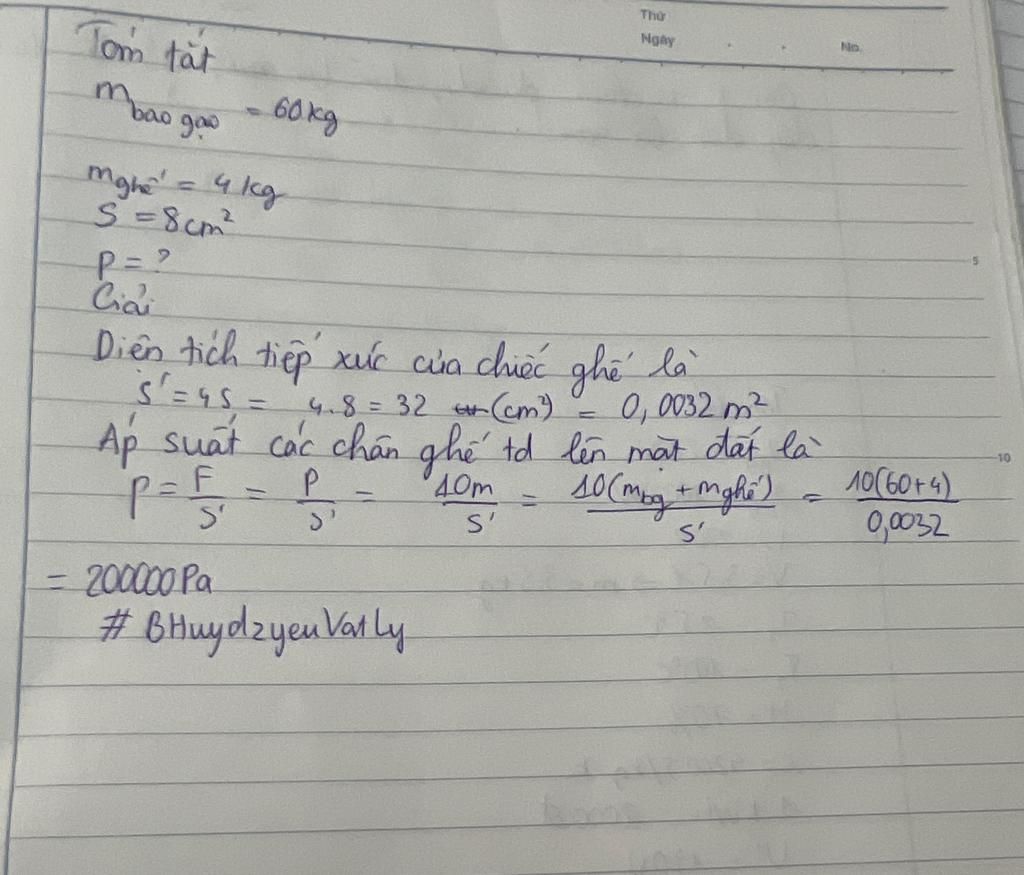 Thứ
Ngày . . No.
Tóm tắt
m bao gạo = 60kg
m ghế = 4kg
S = 8cm²
p = ?
Giải
Diện tích tiếp xúc của chiếc ghế là
S' = 4S = 4.8 = 32 (cm²) = 0,0032 m²
Áp suất các chân ghế td lên mặt đất là
p = F/S' = P/S' = 10m/S' = 10(mbg + mghế)/S' = 10(60+4)/0,0032
= 200000Pa
# BHuydzyeuVatLy
5
10